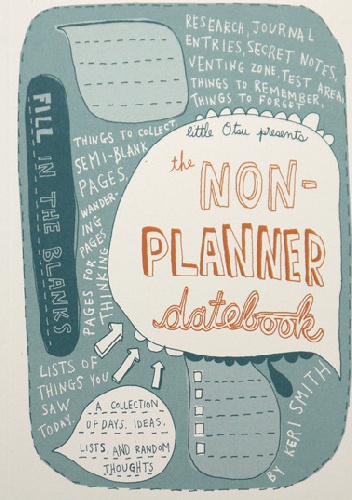 RESEARCH, JOURNAL
ENTRIES, SECRET NOTES,
VENTING ZONE, TEST AREA,
THINGS TO REMEMBER,
THINGS TO FORGET
little Otsu presents
the
NON-
PLANNER
datebook
FILL IN THE BLANKS
THINGS TO COLLECT,
SEMI-BLANK
PAGES,
WANDER-
ING
PAGES
PAGES FOR
THINKING
LISTS OF
THINGS YOU
SAW
TODAY
A COLLECTION
OF DAYS, IDEAS,
LISTS, AND RANDOM
THOUGHTS
BY KERI SMITH